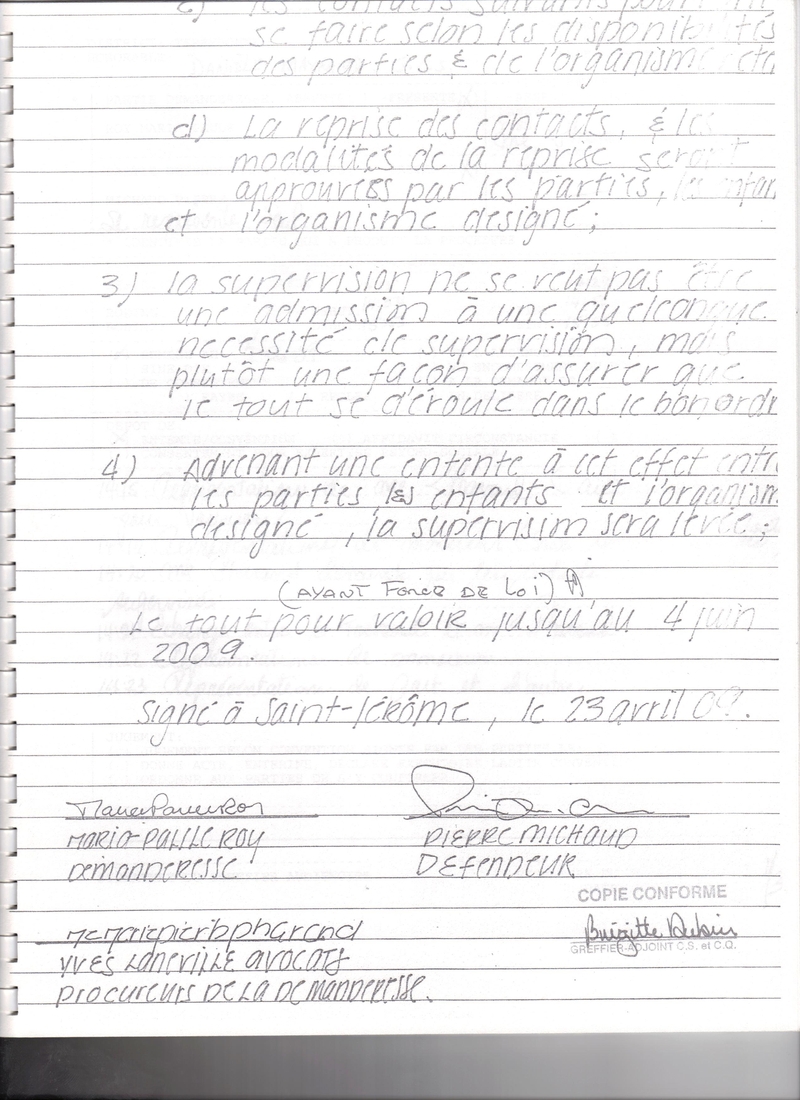 c) les contacts suivants pourront
se faire selon les disponibilités
des parties & de l'organisme
d) La reprise des contacts, & les
modalités de la reprise seront
approuvées par les parties,
et l'organisme designé;
3) la supervision ne se veut pas être
une admission à une quelconque
necessité de supervision, mais
plutôt une façon d'assurer que
le tout se déroule dans le bon ordr
4) Advenant une entente à cet effet entr
les parties les enfants et l'organism
designé, la supervision sera levée;
(AYANT FORCE DE LOI)
Le tout pour valoir jusqu'au 4 juin
2009.
signé à Saint-Jérôme, le 23 avril 09.
MARIE-PAULE ROY
DEMANDERESSE
PIERRE MICHAUD
DEFENDEUR
COPIE CONFORME
GREFFIER-ADJOINT C.S. et C.Q.
YVES AVOCATS
PROCUREURS DE LA DEMANDERESSE.